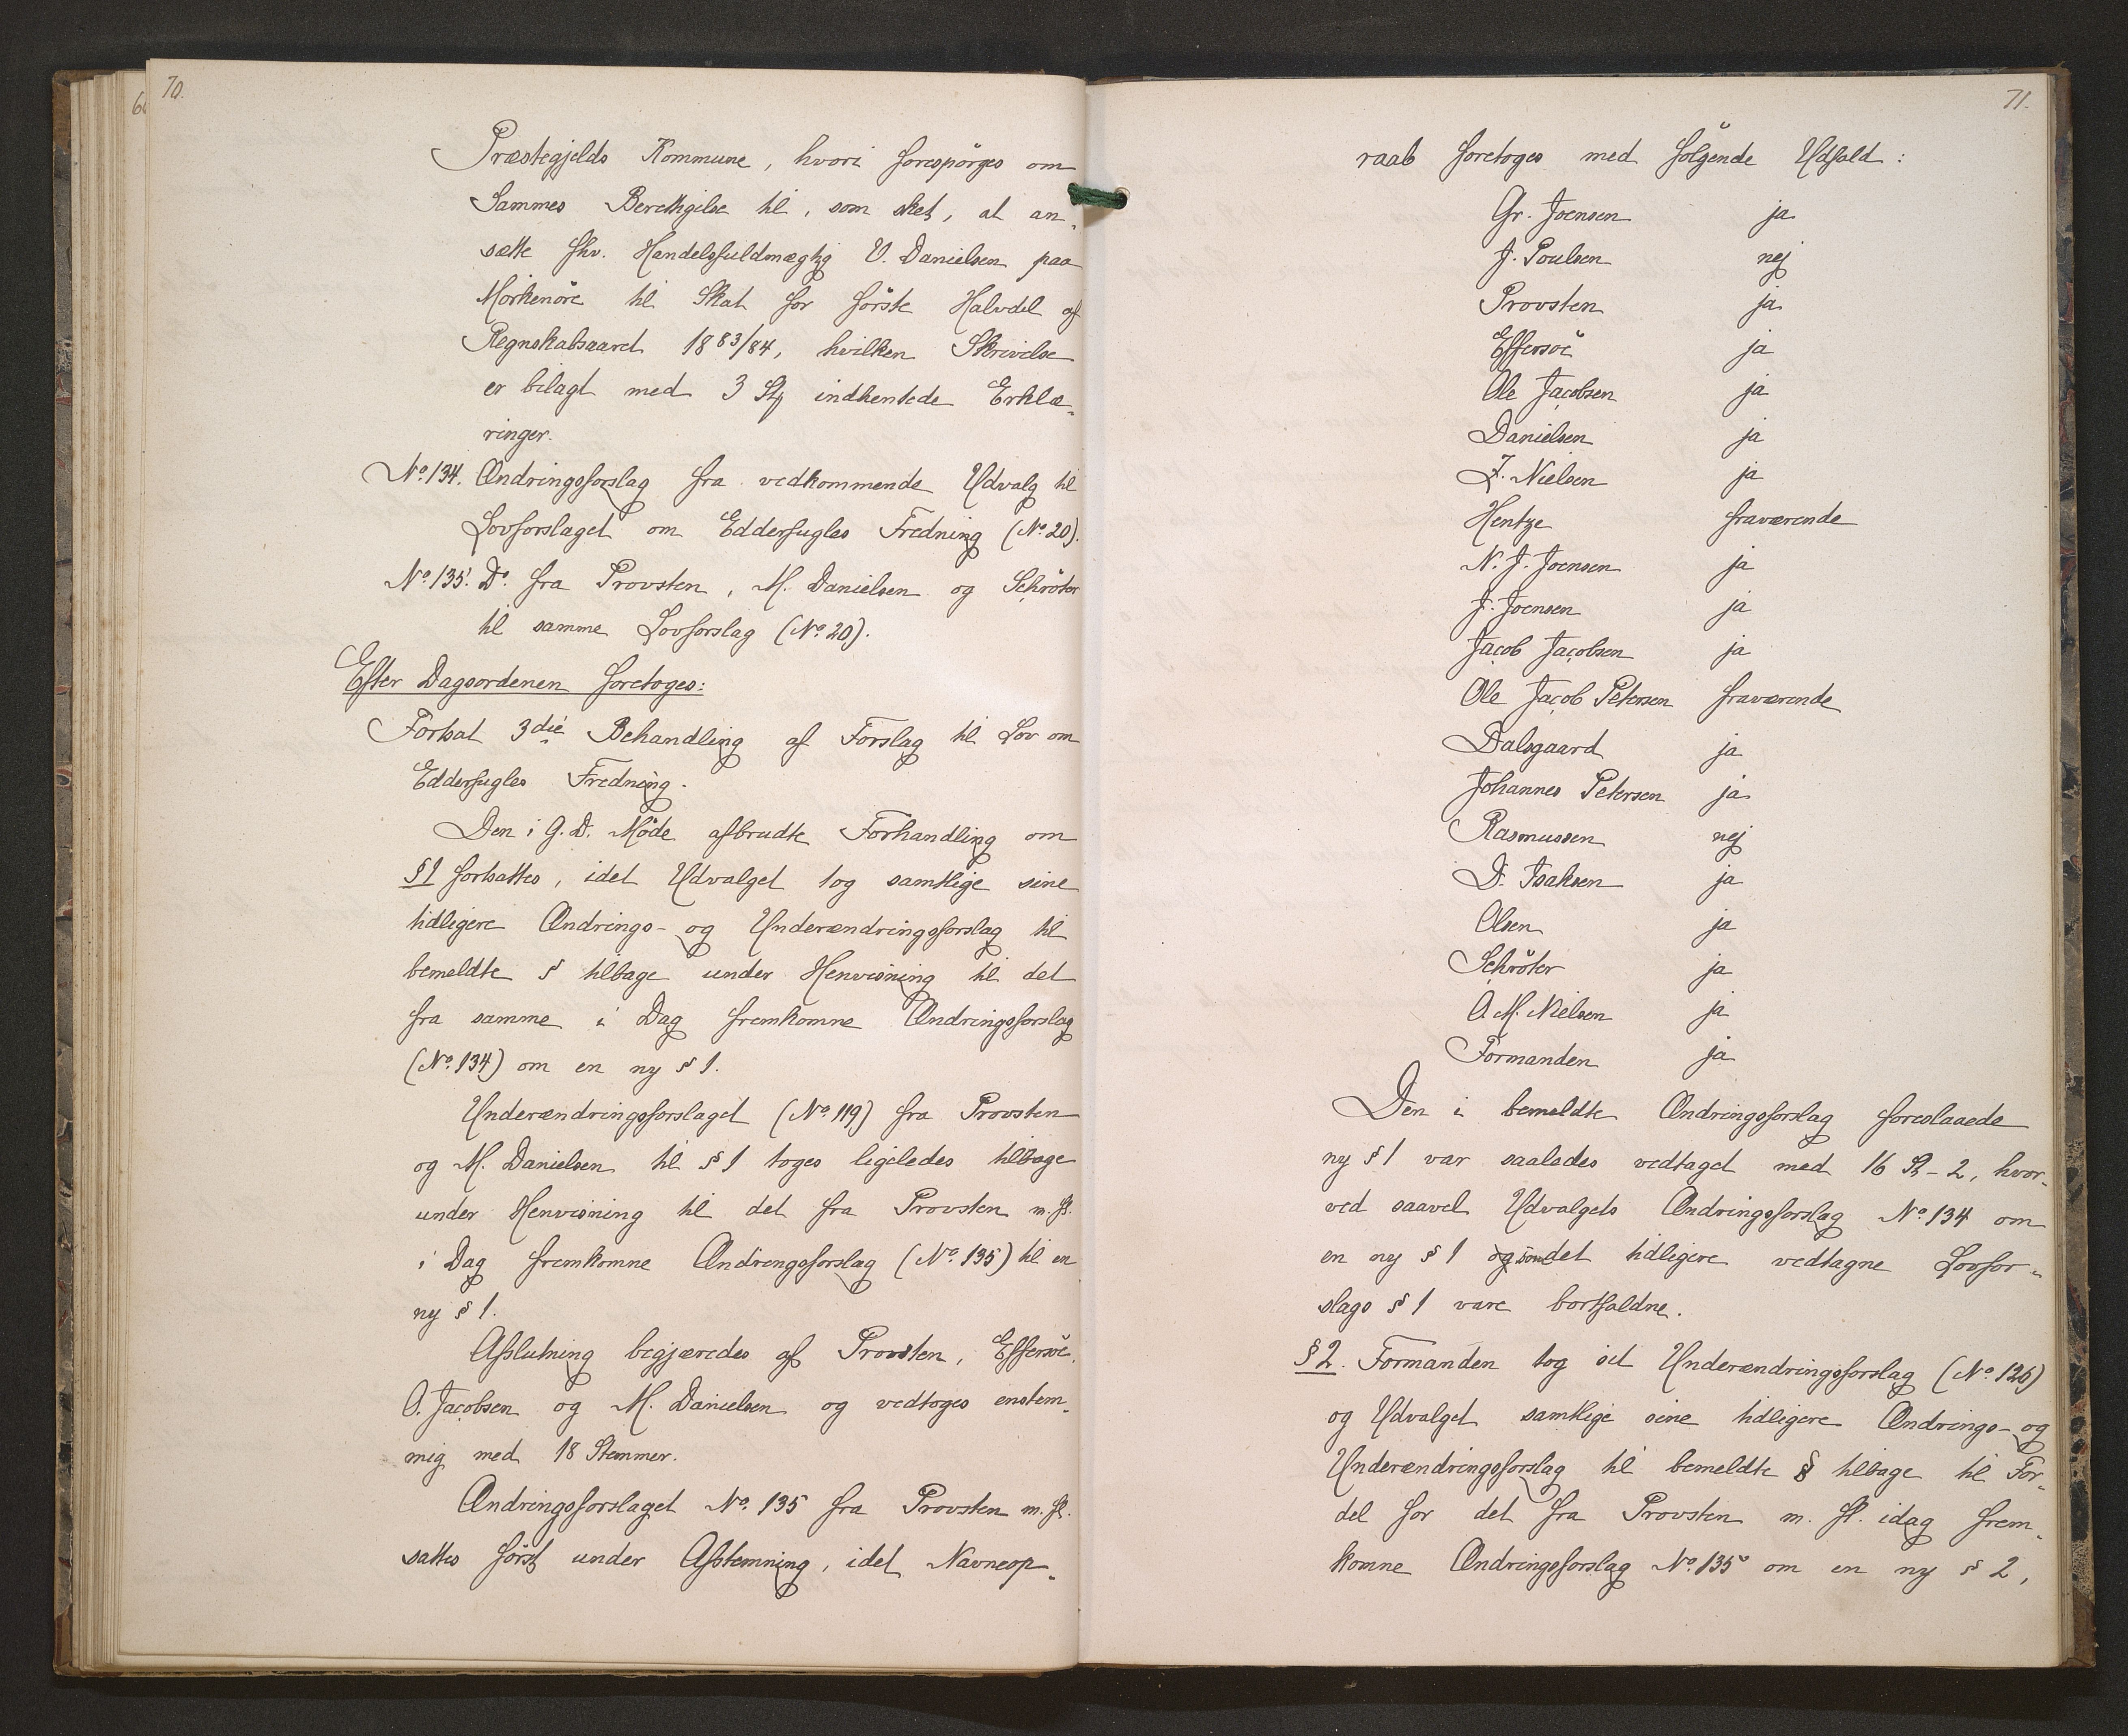 70.
Præstegjelds Kommune, hvori forespörges om
Sammes Berettigelse til, som sket, at an-
sætte fhv. Handelsfuldmægtig V. Danielsen paa
til Skat for förste Halvdel af
Regnskabsaaret 1883/84, hvilken Skrivelse
er bilagt med 3 Stk indhentede Erklæ-
ringer.
No. 134. Ændringsforslag fra vedkommende Udvalg til
Lovforslaget om Edderfugles Fredning (No. 20).
No. 135. Do. fra Provsten, M. Danielsen og Schröter
til samme Lovforslag (No. 20).
Efter Dagsordenen foretoges:
Fortsat 3die Behandling af Forslag til Lov om
Edderfugles Fredning.
Den i G. D. Möde afbrudte Forhandling om
§ 1 fortsattes, idet Udvalget tog samtlige sine
tidligere Ændrings- og Underændringsforslag til
bemeldte § tilbage under Henvisning til det
fra samme i Dag fremkomne Ændringsforslag
(No. 134) om en ny § 1.
Underændringsforslaget (No. 119) fra Provsten
og M. Danielsen til § 1 toges ligeledes tilbage
under Henvisning til det fra Provsten m. fl.
i Dag fremkomne Ændringsforslag (No. 135) til en
ny § 1.
Afslutning begjæredes af Provsten, Effersöe,
O. Jacobsen og M. Danielsen og vedtoges enstem-
mig med 18 Stemmer.
Ændringsforslaget No. 135 fra Provsten m. fl.
sattes först under Afstemning, idet Navneop-
71.
raab foretoges med fölgende Udfald:
Gr. Joensen ja
J. Poulsen nej
Provsten ja
Effersöe ja
Ole Jacobsen ja
Danielsen ja
Z. Nielsen ja
Hentze fraværende
N. J. Joensen ja
J. Joensen ja
Jacob Jacobsen ja
Ole Jacob Petersen fraværende
Dalsgaard ja
Johannes Petersen ja
Rasmussen nej
D. Isaksen ja
Olsen ja
Schröter ja
O. M. Nielsen ja
Formanden ja
Den i bemeldte Ændringsforslag foreslaaede
ny § 1 var saaledes vedtaget med 16 St - 2, hvor-
ved saavel Udvalgets Ændringsforslag No. 134 om
en ny § 1 som det tidligere vedtagne Lovfor-
slags § 1 vare bortfaldne.
§ 2. Formanden tog sit Underændringsforslag (No. 126)
og Udvalget samtlige sine tidligere Ændrings- og
Underændringsforslag til bemeldte § tilbage til For-
del for det fra Provsten m. fl. idag frem-
komne Ændringsforslag No. 135 om en ny § 2,